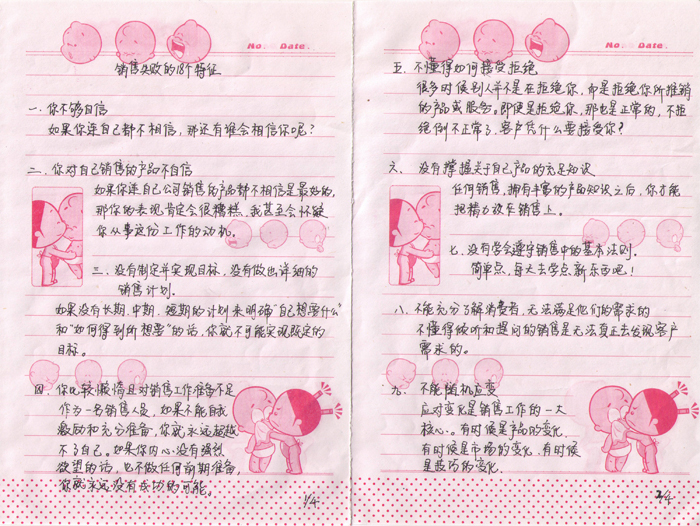 No. Date.
销售失败的18个特征
一. 你不够自信
如果你连自己都不相信, 那还有谁会相信你呢?
二. 你对自己销售的产品不自信
如果你连自己公司销售的产品都不相信是最好的,
那你的表现肯定会很糟糕, 我甚至会怀疑
你从事这份工作的动机。
三. 没有制定并实现目标, 没有做出详细的
销售计划.
如果没有长期.中期.短期的计划来明确"自己想要什么"
和"如何得到所想要"的话, 你就不可能实现既定的
目标。
四. 你比较懒惰且对销售工作准备不足
作为一名销售人员, 如果不能自我
激励和充分准备, 你就永远超越
不了自己。如果你内心没有强烈
欲望的话, 也不做任何前期准备,
你就永远没有成功的可能。
1/4
No. Date.
五. 不懂得如何接受拒绝
很多时候别人并不是在拒绝你, 而是拒绝你所推销
的产品或服务。即使是拒绝你, 那也是正常的, 不拒
绝倒不正常了, 客户凭什么要接受你?
六. 没有掌握关于自己产品的充足知识
任何销售, 拥有丰富的产品知识之后, 你才能
把精力放在销售上。
七. 没有学会遵守销售中的基本法则.
简单点, 每天去学点新东西吧!
八. 不能充分了解消费者, 无法满足他们的需求的
不懂得倾听和提问的销售是无法真正去发现客户
需求的。
九. 不能随机应变
应对变化是销售工作的一大
核心. 有时候是产品的变化.
有时候是市场的变化. 有时候
是技巧的变化.
2/4